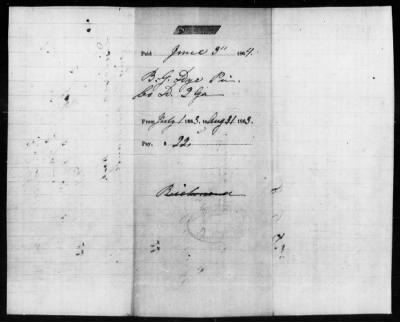 Paid June 3" 1864.
B. G. Dye Pri.
Co D. 2 Ga
From July 1 1863, to Aug 31 1863.
Pay, $ 22
Richmond